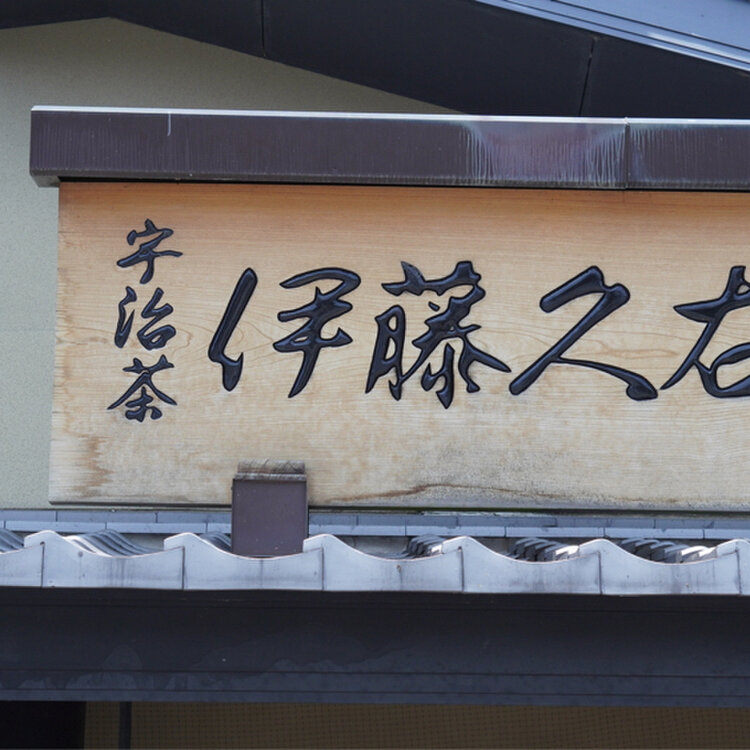 宇治茶
伊藤久右